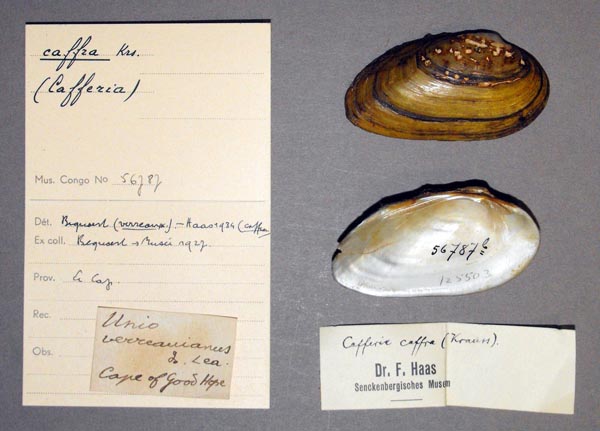 caffra Krs.
(Cafferia)
Mus. Congo No 56787
Dét. Bequaert (verreaux.) – Haas 1934 (caffra
Ex coll. Bequaert → Musée 1927
Prov. Le Cap.
Rec.
Obs.
Unio
verreauxianus
Is. Lea.
Cape of Good Hope
56787
125503
Cafferia caffra (Krauss).
Dr. F. Haas
Senckenbergisches Museum